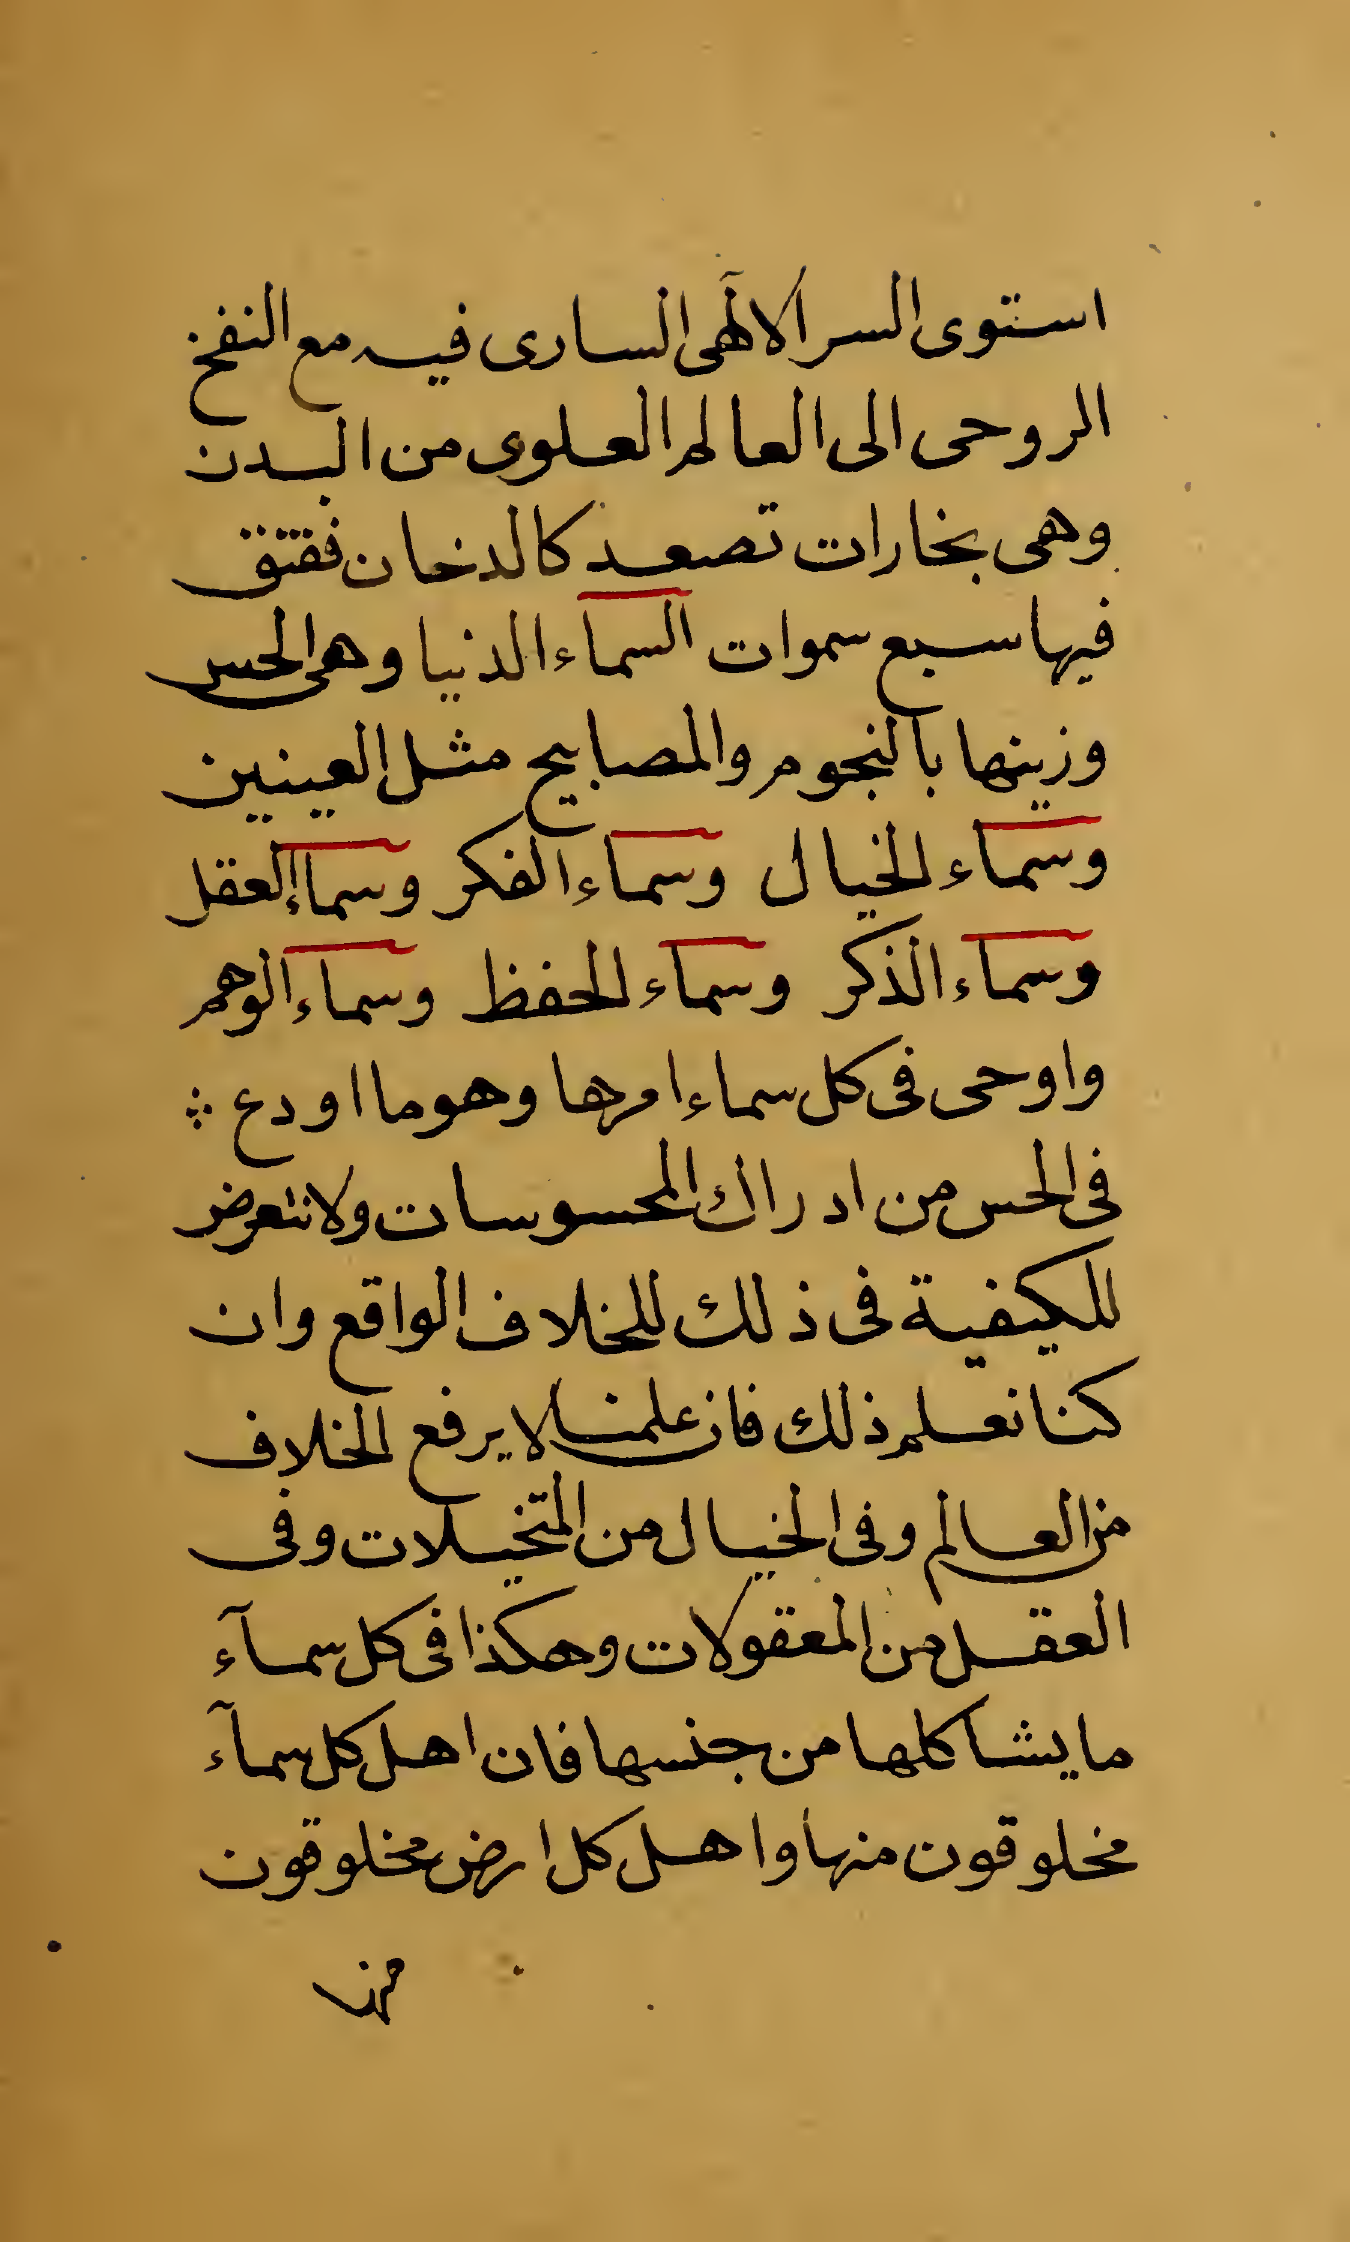 استوى السر الالٓهى السارى فيه مع النفخ
الروحى الى العالم العلوى من البدن
وهى بخارات تصعد كالدخان ففتق
فيها سبع سموات السماء الدنيا وهى الحس
وزينها بالنجوم والمصابيح مثل العينين
وسماء الخيال وسماء الفكر وسماء العقل
وسماء الذكر وسماء الحفظ وسماء الوهم
واوحى فى كل سماء امرها وهو ما اودع ؞
فى الحس من ادراك المحسوسات ولا نتعرض
للكيفية فى ذلك للخلاف الواقع وان
كنا نعلم ذلك فان علمنا لا يرفع الخلاف
من العالم وفى الخيال من المتخيلات وفى
العقل من المعقولات وهكذا فى كل سمآء
ما يشاكلها من جنسها فان اهل كل سمآء
مخلوقون منها واهل كل ارض مخلوقون
منها